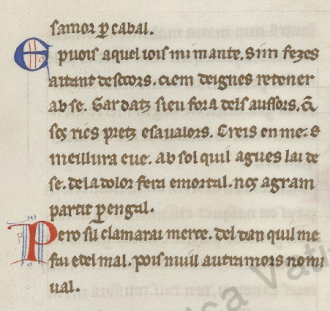 samor ꝑ cabal.
E puois aquel iois mi mante. Sim fezes
aitant de socors. ciem deignes retener
ab se. Gardatz sieu fora dels aussors. Q̃
sos rics pretz esa ualors. Creis en me. e
meillura eue. ab sol quil agues lai de
se. dela dolor fera emortal. nos agram
partit ꝑ engal.
Pero sil clamarai merce. del dan quil me
fai e del mal. pois nuill autramors no mi
ual.